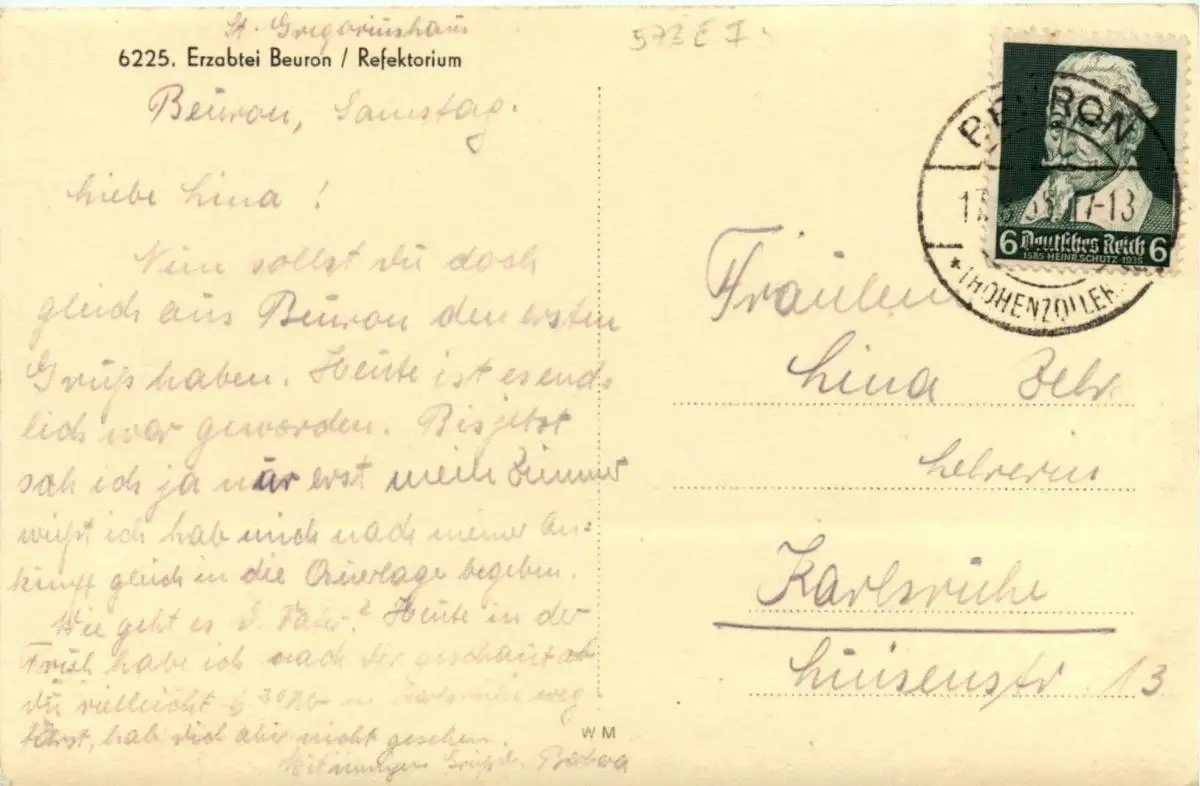 St. Gregoriushaus
6225. Erzabtei Beuron / Refektorium
572 E I.
Beuron, Samstag.
Liebe Lina!
Nun sollst du doch
gleich aus Beuron den ersten
Gruß haben. Heute ist es end-
lich war geworden. Bis jetzt
sah ich ja nur erst mein Zimmer
weißt ich hab mich nach meiner An=
kunft gleich in die Querlage begeben.
Wie geht es d. Vater? Heute in der
Früh habe ich nach dir geschaut ob
du vielleicht in Karlsruhe weg
fährst, hab dich aber nicht gesehen.
Mit innigem Gruß Barbara
WM
BEURON
17-13
(HOHENZOLLER
6 Deutsches Reich 6
1585 HEINR. SCHÜTZ 1935
Fräulein
Lina Zehr
Lehrerin
Karlsruhe
Luisenstr. 13